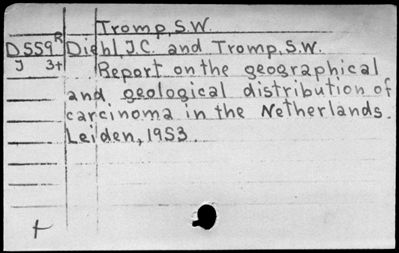 Tromp, S.W.
D559R Diehl, J.C. and Tromp, S.W.
J 3+ Report on the geographical
and geological distribution of
carcinoma in the Netherlands.
Leiden, 1953.
+